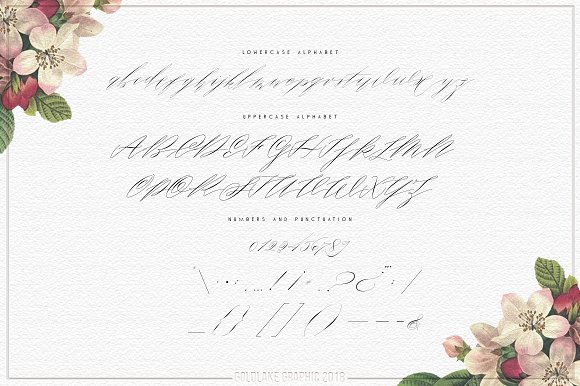 LOWERCASE ALPHABET
abcdefghijklmnopqrstuvwxyz
UPPERCASE ALPHABET
ABCDEFGHIJKLMN
OPQRSTUVWXYZ
NUMBERS AND PUNCTUATION
0123456789
{} [] () — – - &
GOLDLAKE GRAPHIC 2018